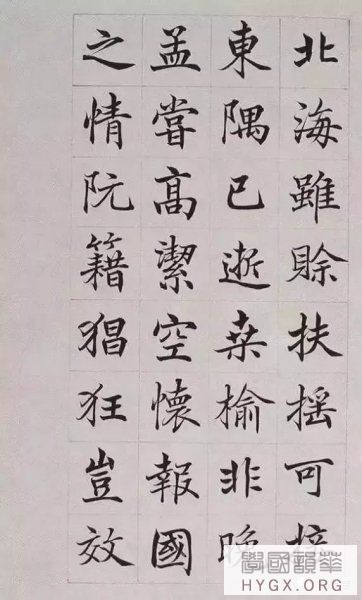 北海雖賒扶摇可接
東隅已逝桒榆非晚
孟嘗高潔空懷報國
之情阮籍猖狂豈效
華韻國學
HYGX.ORG